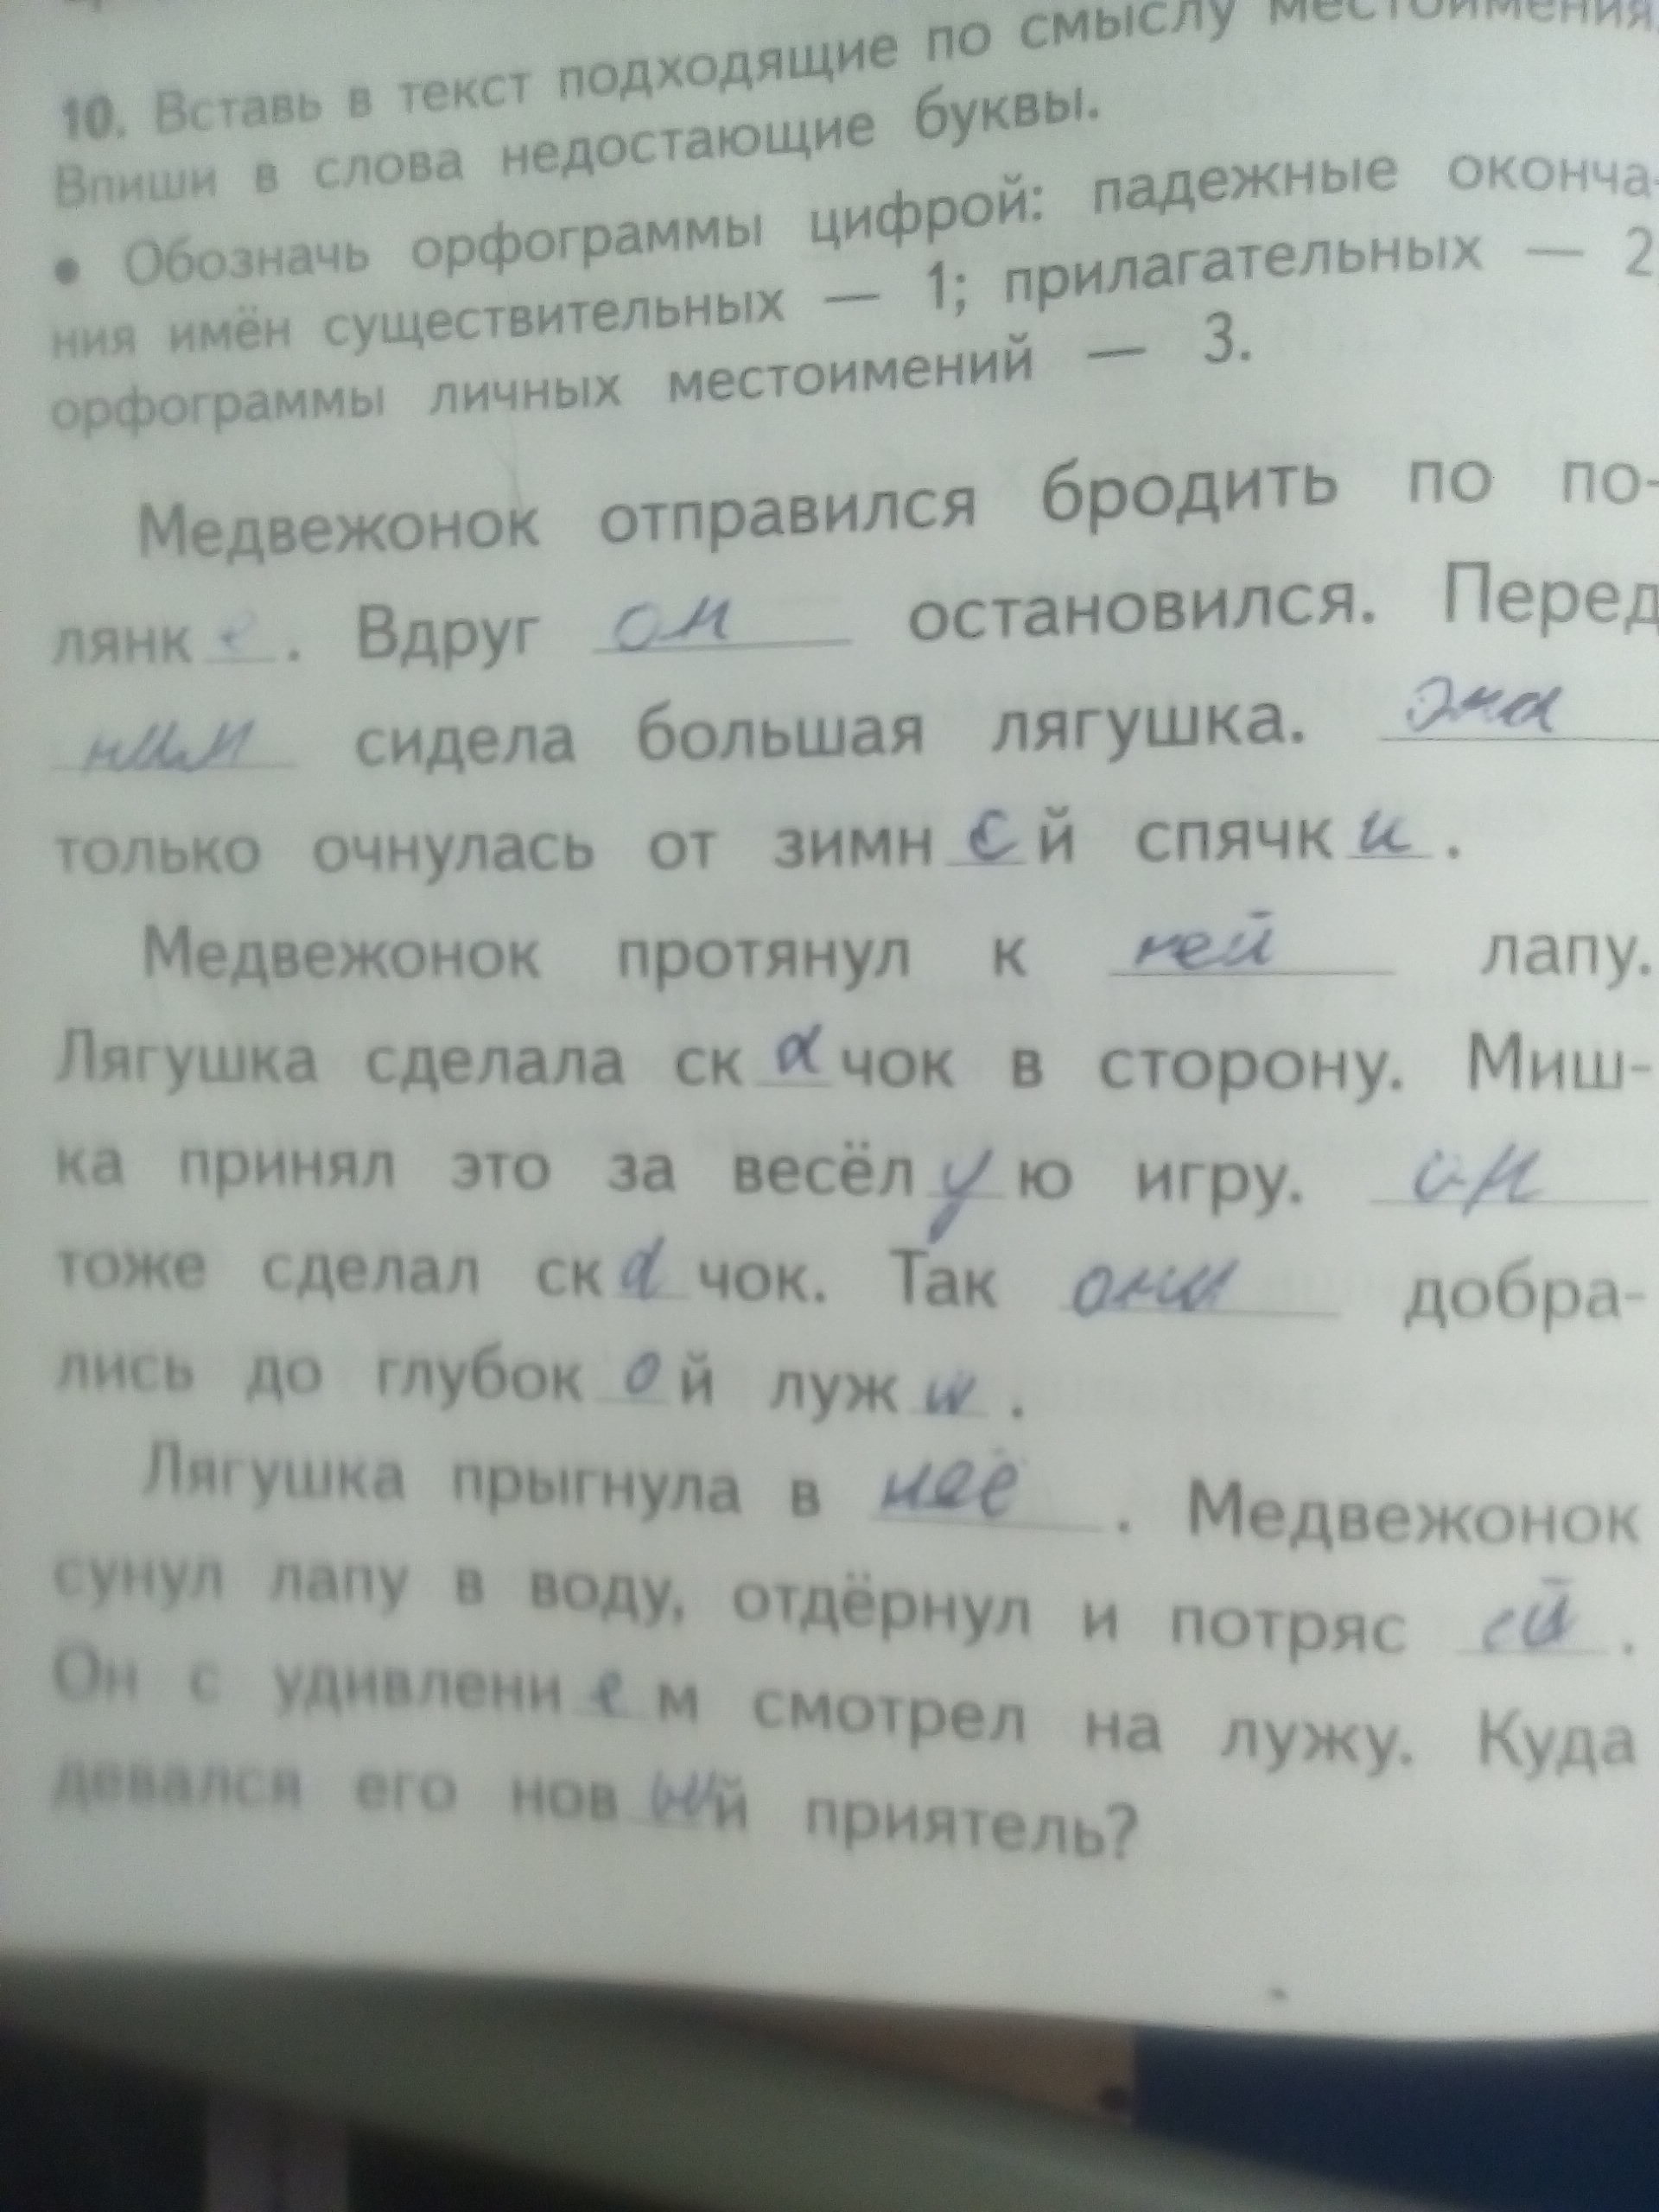 10. Вставь в текст подходящие по смыслу местоимения.
Впиши в слова недостающие буквы.
• Обозначь орфограммы цифрой: падежные оконча-
ния имён существительных — 1; прилагательных — 2
орфограммы личных местоимений — 3.
Медвежонок отправился бродить по по-
лянке. Вдруг он остановился. Перед
ним сидела большая лягушка. Она
только очнулась от зимней спячки.
Медвежонок протянул к ней лапу.
Лягушка сделала скачок в сторону. Миш-
ка принял это за весёлую игру. он
тоже сделал скачок. Так они добра-
лись до глубокой лужи.
Лягушка прыгнула в неё. Медвежонок
сунул лапу в воду, отдёрнул и потряс ей.
Он с удивлением смотрел на лужу. Куда
девался его новый приятель?